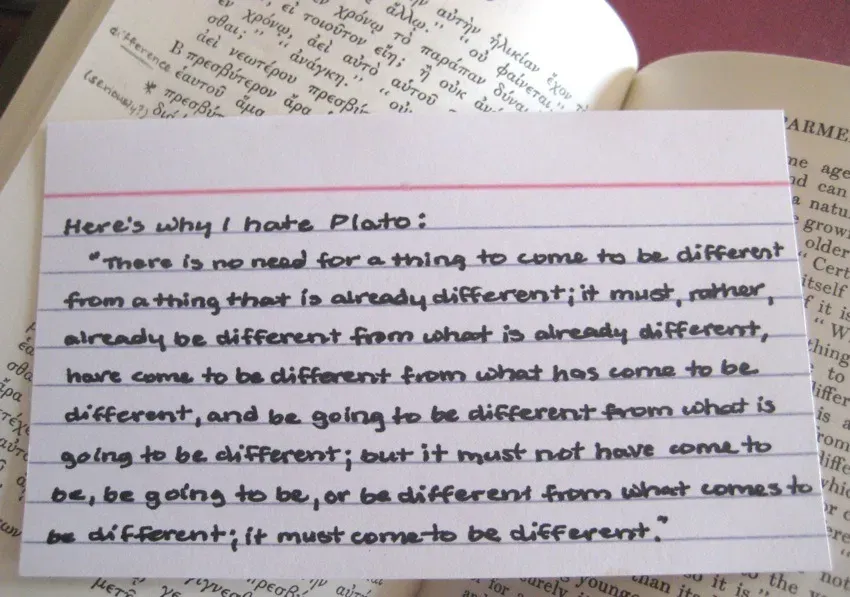 αὐτὴν ἡλικίαν ἔχον
ἄλλῳ." "οὐ φαίνεται."
ἐν χρόνῳ τὸ παράπαν δύναι
εἰ τοιοῦτον εἴη; ἢ οὐκ ἀν
ἐν χρόνῳ, ἀεὶ αὐτὸ αὑτοῦ
σθαι;" "ἀνάγκη." "οὐ
ἀεὶ νεωτέρου πρεσβ
Β πρεσβύτερον ἄρα
difference ἑαυτοῦ ἅμα
* πρεσβύτ
(seriously?)
PARME
me age
and can
a natu
grow
older
" Cert
itself
if it is
Here's why I hate Plato:
"There is no need for a thing to come to be different
from a thing that is already different; it must, rather,
already be different from what is already different,
have come to be different from what has come to be
different, and be going to be different from what is
going to be different; but it must not have come to
be, be going to be, or be different from what comes to
be different; it must come to be different."
than its
so it is"